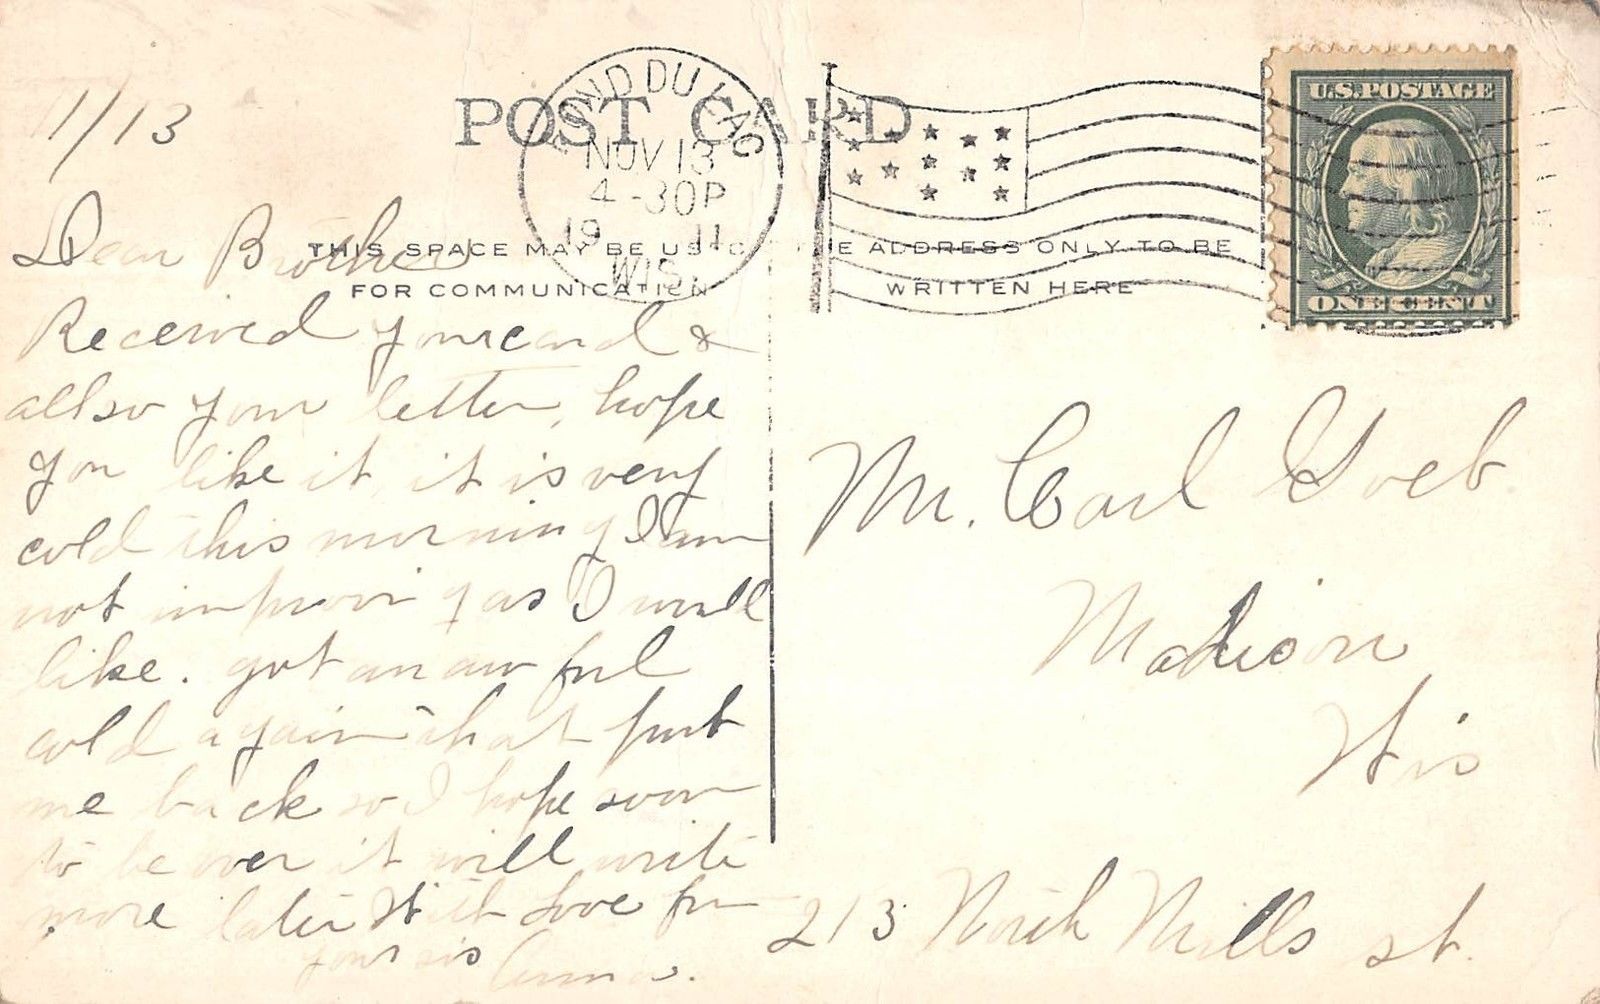 1/13
POST CARD
FOND DU LAC
NOV 13
4-30P
1911
WIS.
U.S. POSTAGE
ONE CENT
THIS SPACE MAY BE USED
FOR COMMUNICATION
THE ADDRESS ONLY TO BE
WRITTEN HERE
Dear Brother
Received your card &
allso your letter, hope
you like it, it is very
cold this morning I am
not improving as I would
like. got an awful
cold again that put
me back so I hope soon
to be over it will write
more later With Love from
your sis Anna.
Mr. Carl Goeb
Madison
Wis
213 North Mills st.